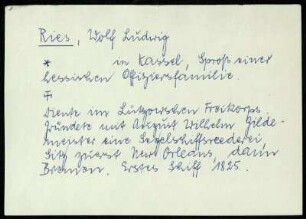 Ries, Wolf Ludwig
* in Kassel, Sproß einer
hessischen Offiziersfamilie.
∓
Diente im Lützowschen Freikorps
Gründete mit August Wilhelm Gilde-
meister eine Segelschiffsreederei,
Sitz zuerst New Orleans, dann
Bremen. Erstes Schiff 1825.